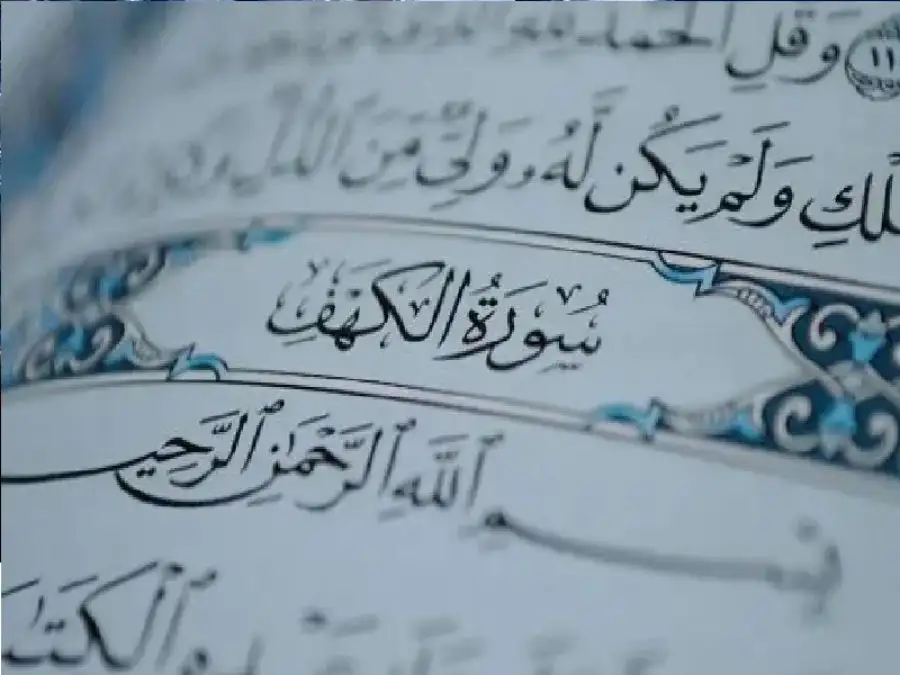 ١١ وَقُلِ الْحَمْدُ
لْكِ وَلَمْ يَكُن لَّهُۥ وَلِىٌّ مِّنَ الذُّلِّ
سُورَةُ الكَهْفِ
بِسْمِ ٱللَّهِ ٱلرَّحْمَٰنِ ٱلرَّحِي
ٱلْكِتَٰ